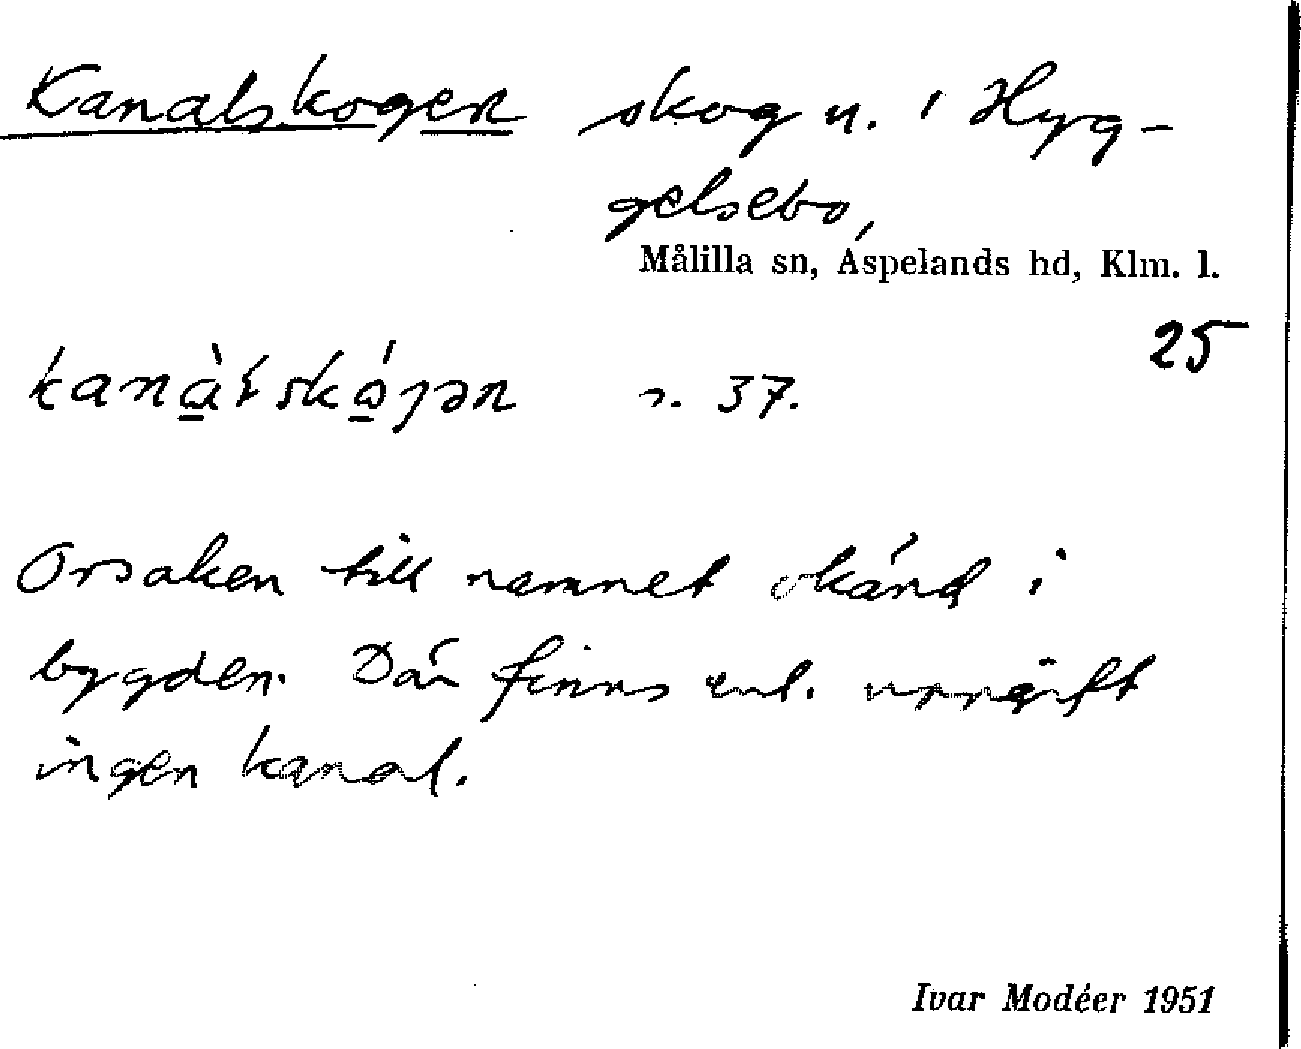 Kanalskogen skog n. i Hyg-
gelsebo,
Målilla sn, Aspelands hd, Klm. l.
25
s. 37.
Orsaken till namnet okänd i
bygden. Där finns enl. uppgift
ingen kanal.
Ivar Modéer 1951